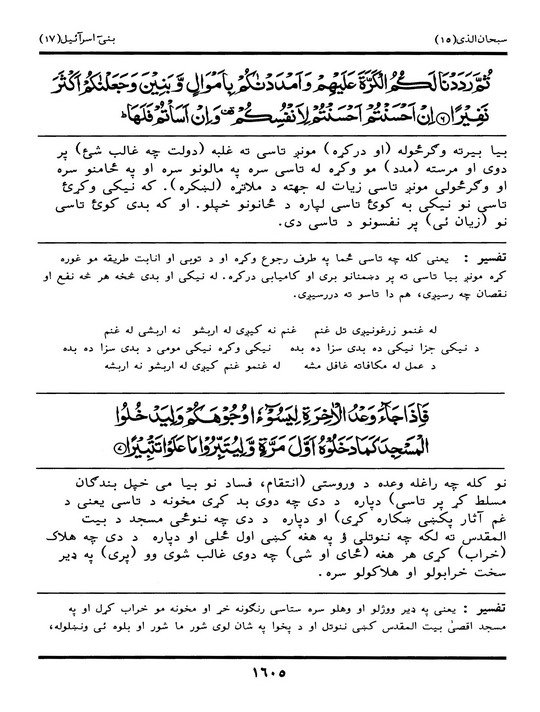 سبحان الذی(١٥) بنیٓ اسرآئیل(١٧)
ثُمَّ رَدَدْنَا لَكُمُ الْكَرَّةَ عَلَيْهِمْ وَاَمْدَدْنٰكُمْ بِاَمْوَالٍ وَّبَنِيْنَ وَجَعَلْنٰكُمْ اَكْثَرَ
نَفِيْرًا ﴿٦﴾ اِنْ اَحْسَنْتُمْ اَحْسَنْتُمْ لِاَنْفُسِكُمْ وَاِنْ اَسَاْتُمْ فَلَهَا ط
بیا بیرته وګرځوله (او درکړه) مونږ تاسی ته غلبه (دولت چه غالب شئ) پر
دوی او مرسته (مدد) مو وکړه له تاسی سره په مالونو سره او په ځامنو سره
او وګرځولی مونږ تاسی زیات له جهته د ملاتړه (لښکره). که نیکی وکړئ
تاسی نو نیکی به کوئ تاسی لپاره د ځانونو خپلو. او که بدی کوئ تاسی
نو (زیان ئی) پر نفسونو د تاسی دی.
تفسیر : یعنی کله چه تاسی ځما په طرف رجوع وکړه او د توبی او انابت طریقه مو غوره
کړه مونږ بیا تاسی ته پر دښمنانو بری او کامیابی درکړه. له نیکی او بدی څخه هر څه نفع او
نقصان چه رسیږی، هم دا تاسو ته دررسیږی.
له غنمو زرغونیږی تل غنم غنم نه کیږی له اربشو نه اربشی له غنم
د نیکی جزا نیکی ده د بدی سزا ده بده نیکی وکړه نیکی مومی د بدی سزا ده بده
د عمل له مکافاته غافل مشه له غنمو غنم کیږی له اربشو نه اربشه
فَاِذَا جَآءَ وَعْدُ الْاٰخِرَةِ لِيَسُوْٓءٗا وُجُوْهَكُمْ وَلِيَدْخُلُوا
الْمَسْجِدَ كَمَا دَخَلُوْهُ اَوَّلَ مَرَّةٍ وَّلِيُتَبِّرُوْا مَا عَلَوْا تَتْبِيْرًا ﴿٧﴾
نو کله چه راغله وعده د وروستی (انتقام، فساد نو بیا می خپل بندګان
مسلط کړ پر تاسی) دپاره د دی چه دوی بد کړی مخونه د تاسی یعنی د
غم آثار پکښی ښکاره کړی) او دپاره د دی چه ننوځی مسجد د بیت
المقدس ته لکه چه ننوتلی ؤ په هغه کښی اول ځلی او دپاره د دی چه هلاک
(خراب) کړی هر هغه (ځای او شی) چه دوی غالب شوی وو (پری) په ډیر
سخت خرابولو او هلاکولو سره.
تفسیر : یعنی په ډیر ووژلو او وهلو سره ستاسی رنګونه خړ او مخونه مو خراب کړل او په
مسجد اقصیٰ بیت المقدس کښی ننوتل او د پخوا په شان لوی شور ما شور او بلوه ئی ونښلوله،
١٦٠٥